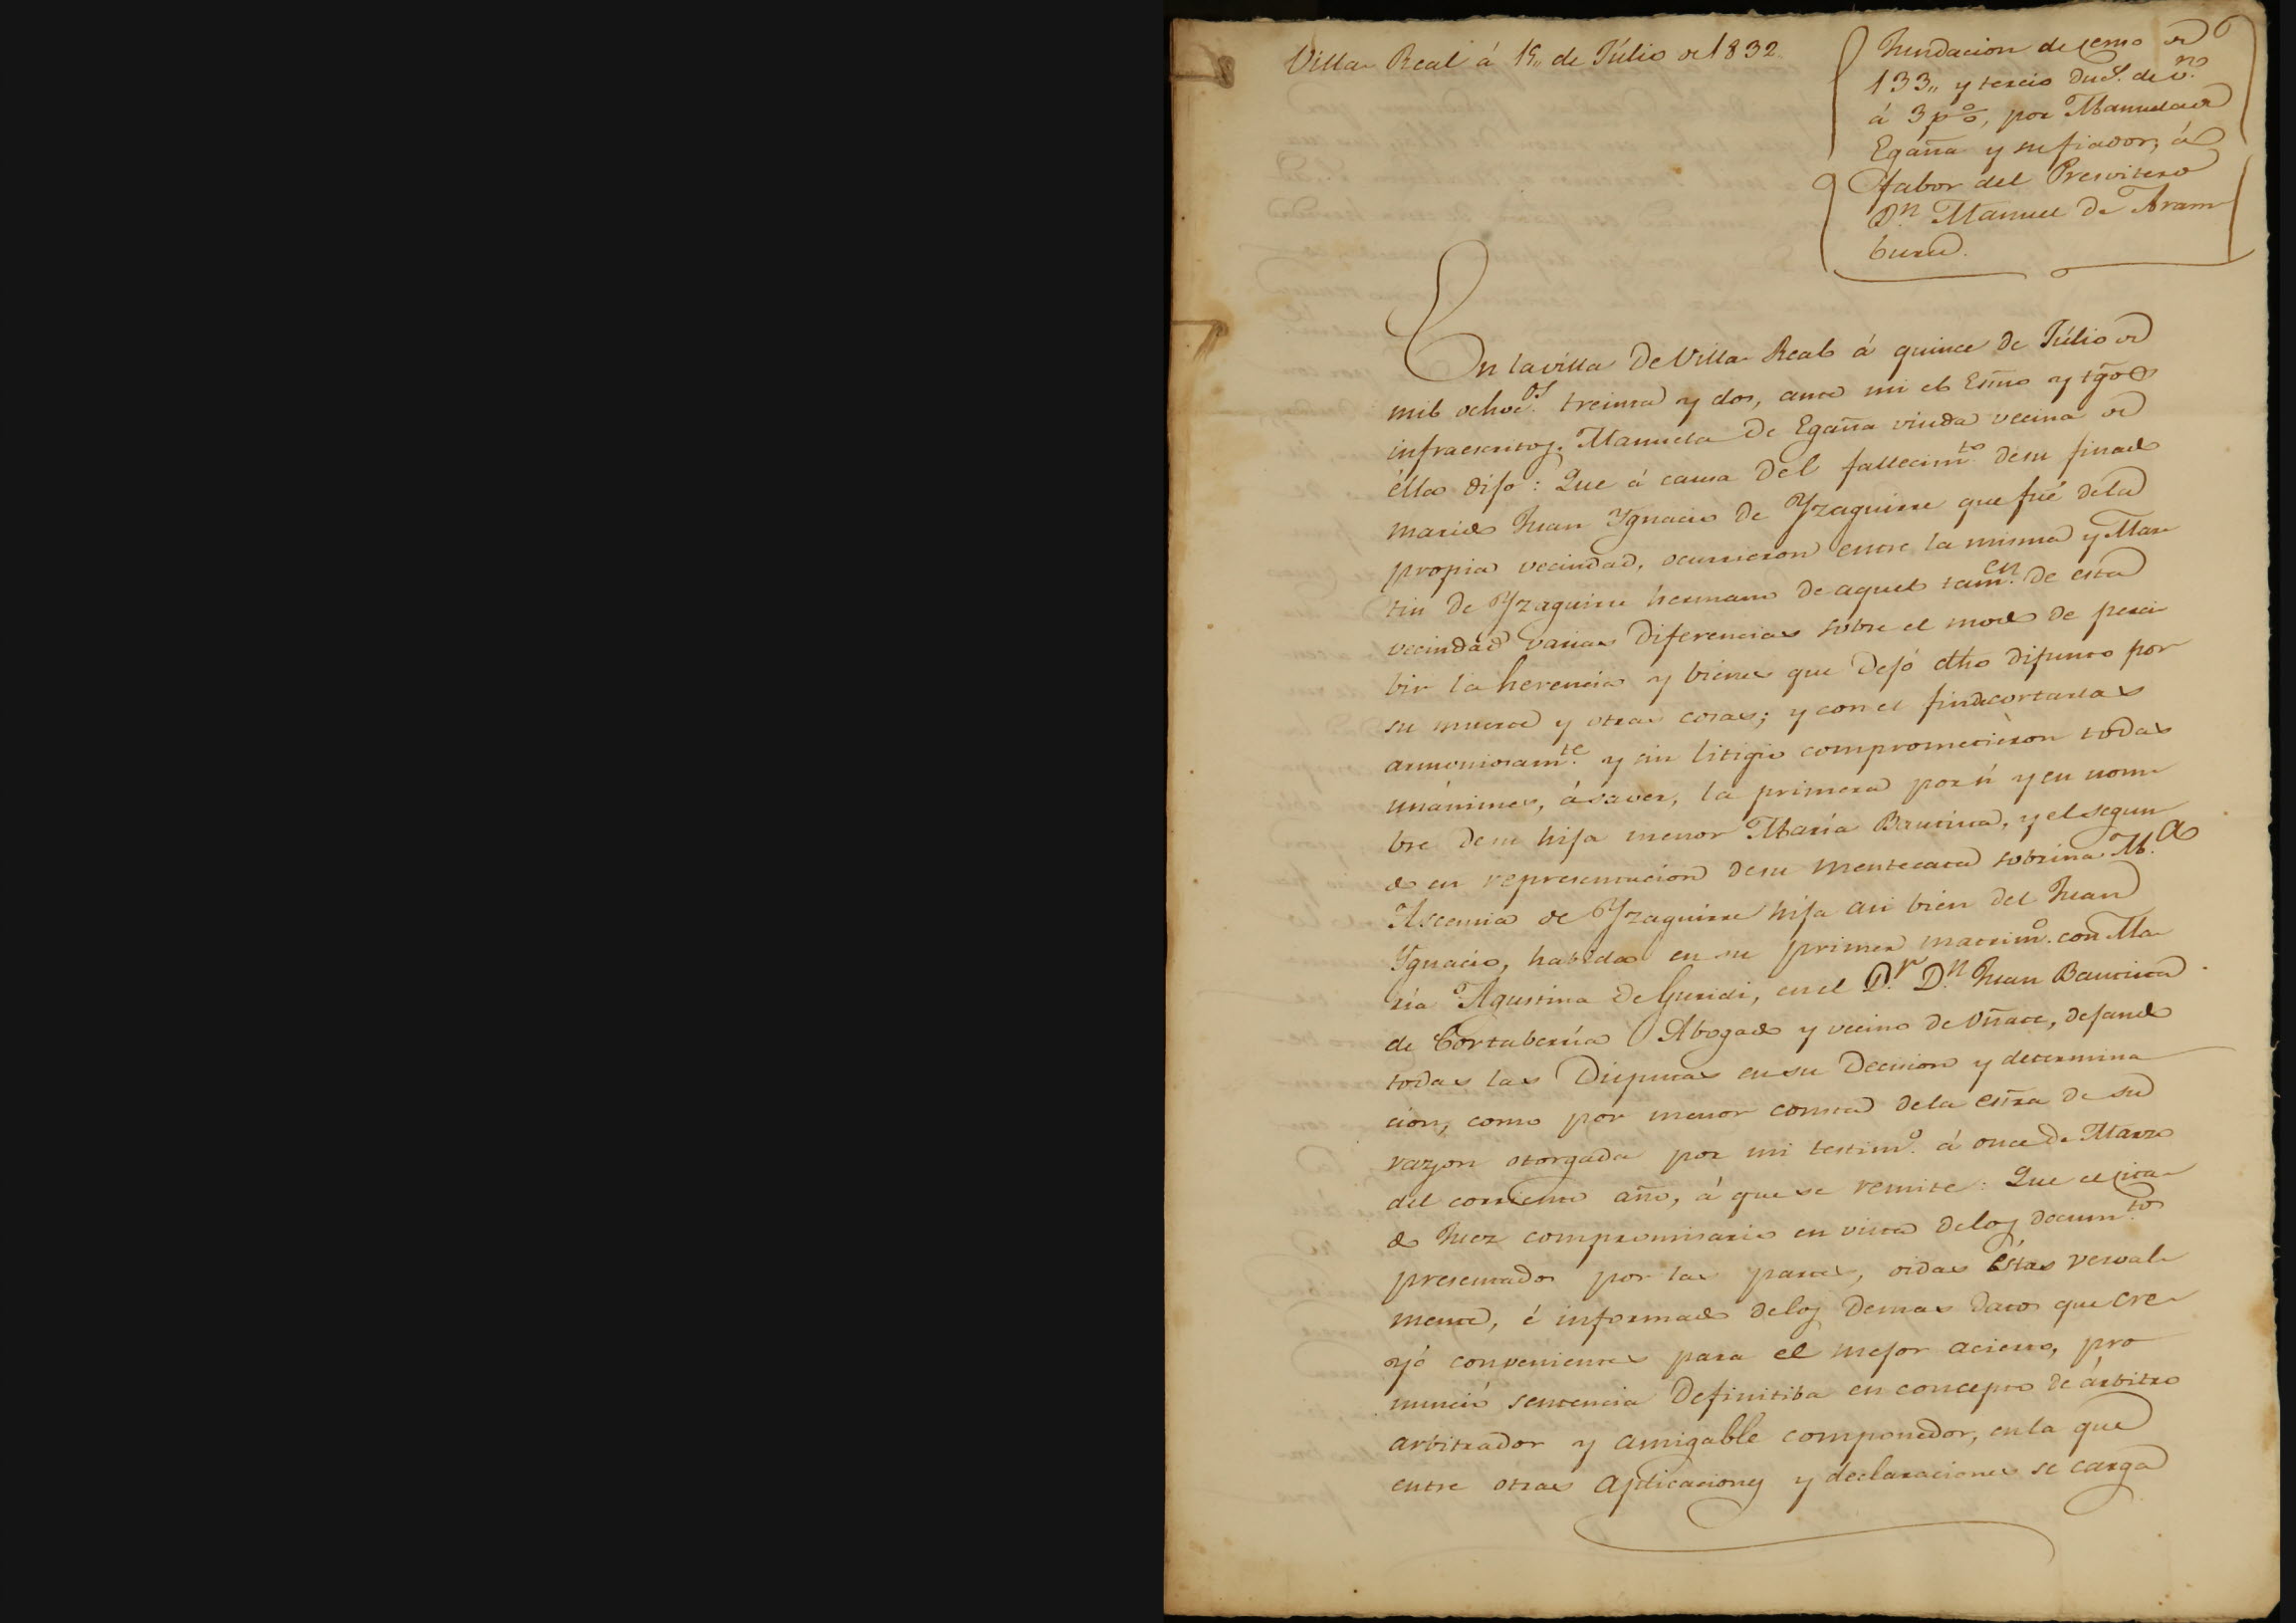 Villa Real á 15,, de Júlio de 1832
Fundacion de censo de
133,, y tercio duc.s de v.n
á 3 p%, por Manuela de
Egaña y su fiador, á
fabor del Presvitero
D.n Manuel de Aram
buru.
En la villa de Villa Real á quince de Júlio de
mil ochoc.os treinta y dos, ante mi el Esño y tg̃os
infraescritos, Manuela de Egaña viuda vecina de
élla dijo: Que á causa del fallecim.to de su finado
marido Juan Ygnacio de Yzaguirre que fué de la
propia vecindad, ocurrieron entre la misma y Mar
tin de Yzaguirre hermano de aquel tam.en de esta
vecindad varias diferencias sobre el modo de perci
bir la herencia y bienes que dejó dho difunto por
su muerte y otras cosas; y con el fin de cortarlas
armoniosam.te y sin litigio comprometieron todas
unánimes, á saver, la primera por sí y en nom
bre de su hija menor María Bautista, y el segun
do en representacion de su mentecata sobrina M.a
Ascencia de Yzaguirre hija asi bien del Juan
Ygnacio, habida en su primer matrim.o con Ma
ría Agustina de Guridi, en el D.r D.n Juan Bautista
de Cortaberría Abogado y vecino de Oñate, dejando
todas las disputas en su decision y determina
cion, como por menor consta de la esñra de su
razon otorgada por mi testim.o á once de Marzo
del corriente año, á que se remite: Que el cita
do Juez compromisario en vista de los docum.tos
presentados por las partes, oidas éstas verval
mente, é informado de los demas datos que cre
yó convenientes para el mejor acierto, pro
nunció sentencia definitiba en concepto de árbitro
arbitrador y amigable componedor, en la que
entre otras aplicaciones y declaraciones se carga